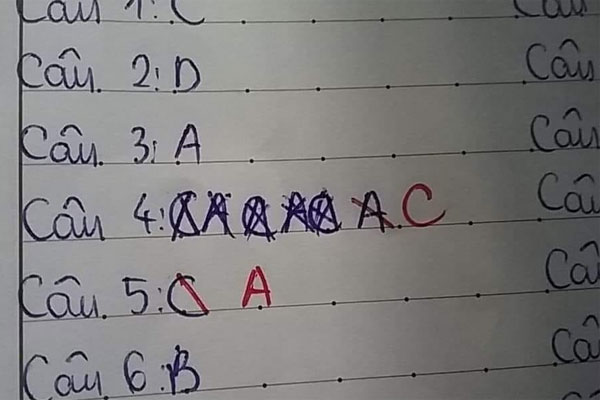 Câu 1: C Câu
Câu 2: D Câu
Câu 3: A Câu
Câu 4: A C Câu
Câu 5: C A Câu
Câu 6: B Câu